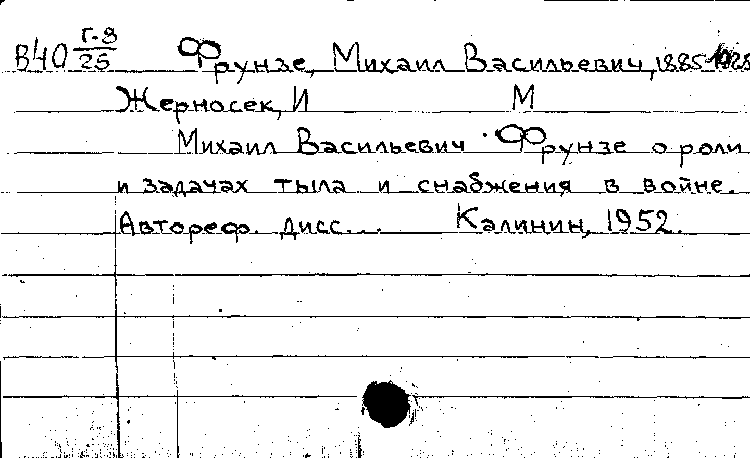 В40 Г-8/25 Фрунзе, Михаил Васильевич, 1885-1925
Жерносек, И М
Михаил Васильевич Фрунзе о роли
и задачах тыла и снабжения в войне.
Автореф. дисс... Калинин, 1952.